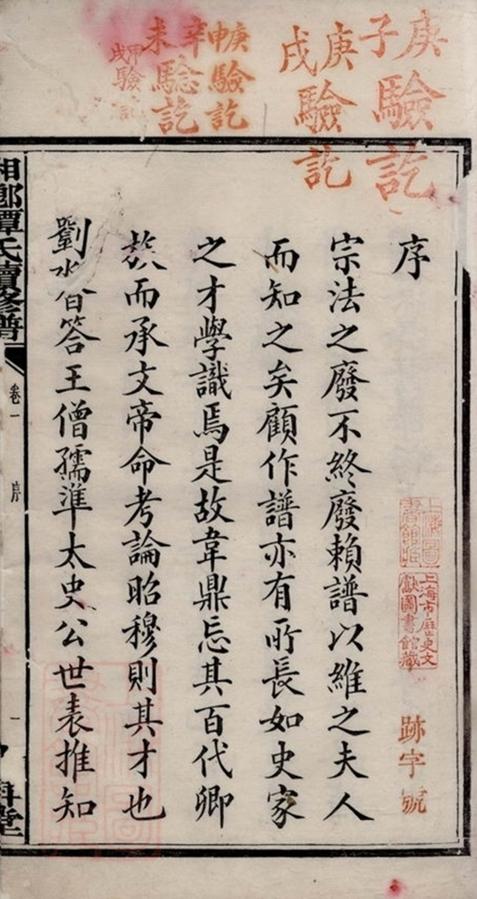 庚子驗訖
庚戌驗訖
庚申驗訖
辛未驗訖
甲戌驗訖
上海市歷史文獻圖書館藏
跡字號
序
宗法之廢不終廢賴譜以維之夫人
而知之矣顧作譜亦有所長如史家
之才學識焉是故韋鼎忘其百代卿
族而承文帝命考論昭穆則其才也
劉答王僧孺準太史公世表推知
湘鄉譚氏續修譜
卷一
序
一
堂